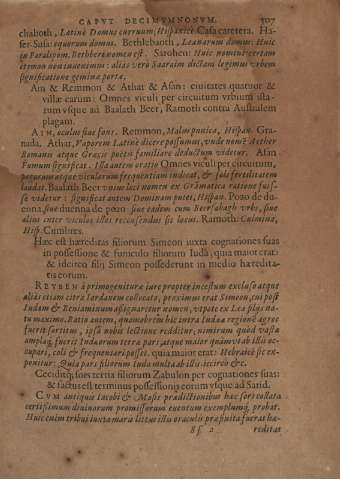 CAPVT DECIMVMNONVM. 307
chaboth, Latinè Domus curruum, Hispanicè Casa caretera. Ha-
ser-Susa: equorum domus. Bethlebaoth, Leænarum domus: Huic
in Paralypom. Bethberei nomen est. Sarohen: Huic nomini certam
etymon non inuenimus: aliàs verò Saaraim dictam legimus vrbem
significatione gemina portæ.
Ain & Remmon & Athar & Asan: ciuitates quatuor &
villæ earum: Omnes viculi per circuitum vrbium ista-
rum vsque ad Baalath Beer, Ramoth contra Australem
plagam.
AIN, oculus siue fons. Remmon, Malum punica, Hispan. Gra-
nada. Athar, Vaporem Latinè dicere possumus, vnde nomē Aether
Romanis atque Græcis poëtis familiare deductum videtur. Asan
Fumum significat. Illa autem oratio Omnes viculi per circuitum,
atque vicularum frequentiam indicat, & soli fertilitatem
laudat. Baalath Beer vnius loci nomen ex Grāmatica ratione fuis-
se videtur: significat autem Dominam putei, Hispan. Pozo de du-
enna, siue duenna de pozo siue eadem cum Beersabagh vrbs, siue
alius inter viculos illos recensendus sit locus. Ramoth: Culmina,
Hisp. Cumbres.
Hæc est hæreditas filiorum Simeon iuxta cognationes suas
in possessione & funiculo filiorum Iuda, quia maior erat:
& idcirco filij Simeon possederunt in medio hæredita-
tis eorum.
REVBEN à primogenitura iure propter incestum excluso atque
aliàs etiam citra Iordanem collocato, proximus erat Simeon, cui post
Iudam & Beniaminum assignaretur nomen, vtpote ex Lea plus na-
tu maximo. Ratio autem, quamobrem hic intra Iudæ regionē agros
fuerit sortitus, ipsa nobis lectione redditur: nimirum quòd vasta
amplaq; fuerit Iudæorum terra pars, atque maior quàm vt ab illis oc-
cupari, coli & frequentari posset. quia maior erat: Hebraicè sic ex-
penitur: Quia pars filiorum Iuda multa ab illis: idcircò &c.
Ceciditq; sors tertia filiorum Zabulon per cognationes suas:
& factus est terminus possessionis eorum vsque ad Sarid.
CVM antiquis Iacobi & Mosis prædictionibus hæc sors collata
certissimum diuinorum promissorum euentum exemplumq; probat.
Huic enim tribui iuxta maris littus illis oraculis præfinita fuerat hæ-
reditas